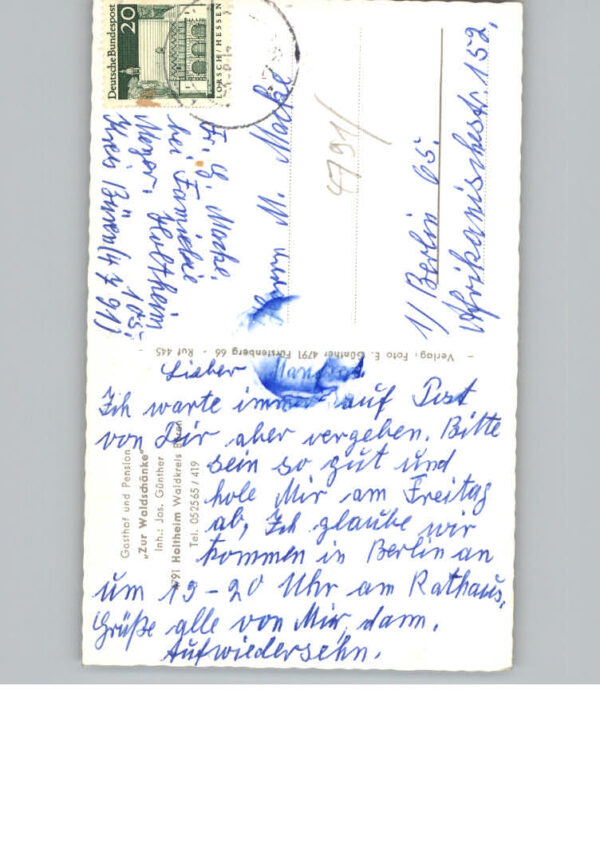 Deutsche Bundespost
20
LORSCH / HESSEN
Fr. G. Macke.
bei Familie
Holtheim
105,
Kreis Büren (4791)
M. Macke
4791
1/ Berlin 65.
Afrikanischestr. 152,
- Verlag: Foto E. Günther 4791 Fürstenberg 66 - Ruf 445 -
Gasthof und Pension
„Zur Waldschänke"
Inh.: Jos. Günther
4791 Holtheim Waldkreis Büren
Tel. 052565 / 419
Lieber Manfred
Ich warte immer auf Post
von Dir aber vergeben. Bitte
sein so gut und
hole Mir am Freitag
ab, Ich glaube wir
kommen in Berlin an
um 19-20 Uhr am Rathaus,
Grüße alle von Mir, dann.
Aufwiedersehn.